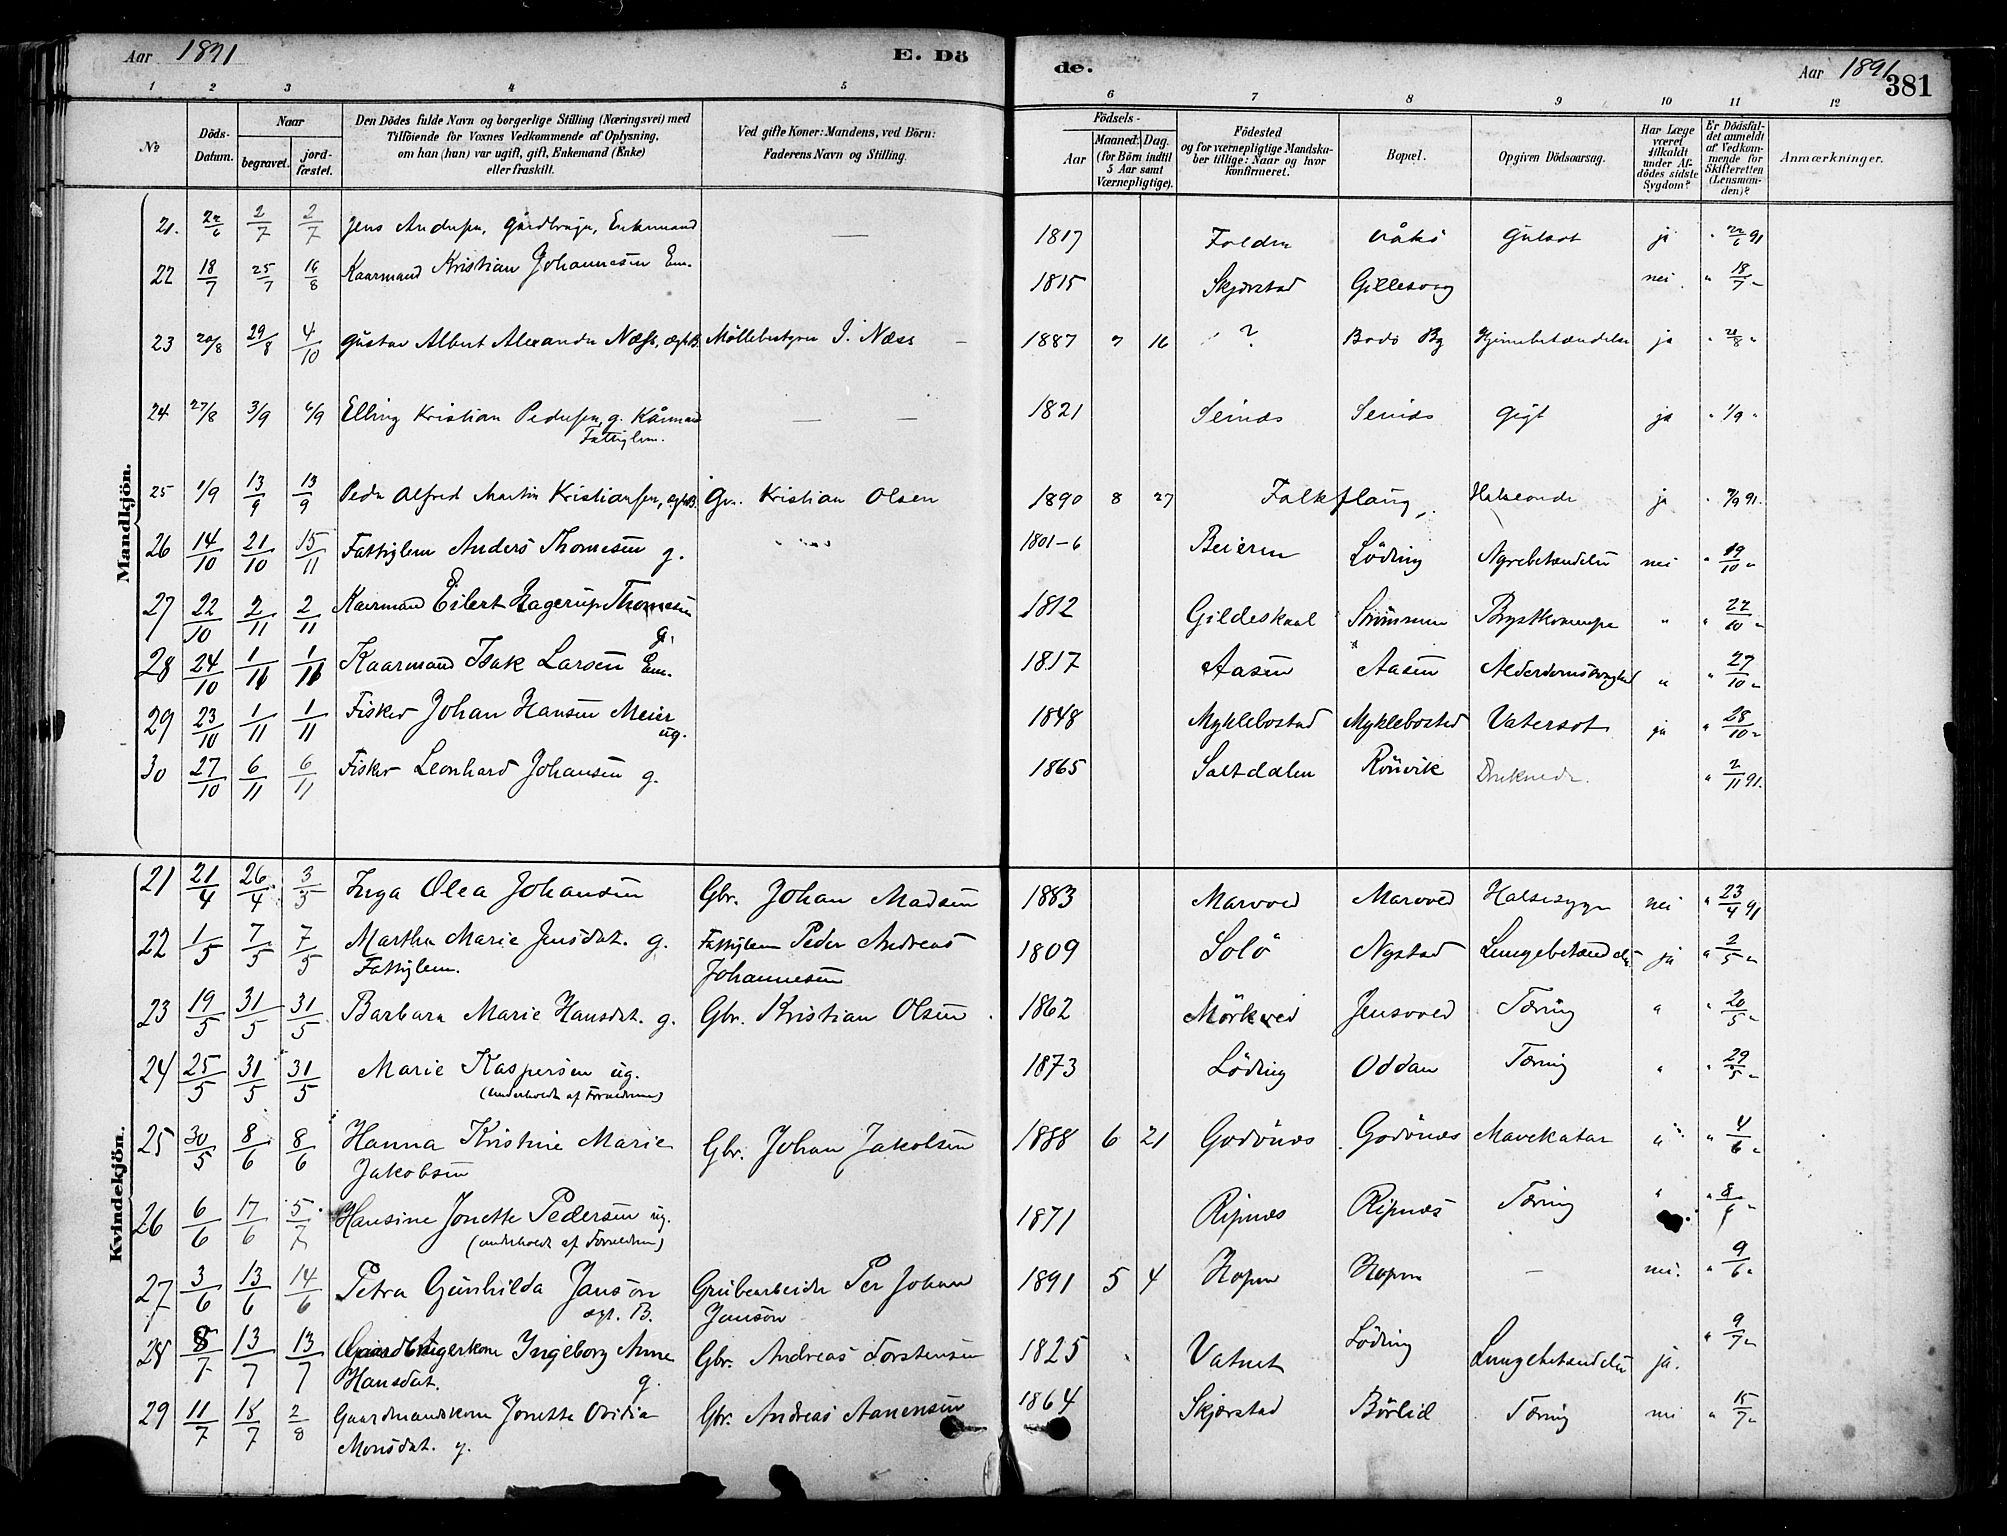 Aar 1891 E. Dö de. Aar 1891 381
1 2 3 4 5 6 7 8 9 10 11 12
No Döds-Datum. Naar begravet. jord-fæstet. Den Dödes fulde Navn og borgerlige Stilling (Næringsvei) med Tilföiende for Voxnes Vedkommende af Oplysning, om han (hun) var ugift, gift, Enkemand (Enke) eller fraskilt. Ved gifte Koner: Mandens, ved Börn: Faderens Navn og Stilling. Födsels- Aar Maaned. Dag. (for Börn indtil 5 Aar samt Værnepligtige). Födested og for værnepligtige Mandska-ber tillige: Naar og hvor konfirmeret. Bopæl. Opgiven Dödsaarsag. Har Læge været tilkaldt under Af-dödes sidste Sygdom? Er Dödsfal-det anmeldt af Vedkom-mende for Skifteretten (Lensman-den)? Anmærkninger.
Mandkjön.
21. 22/6 2/7 2/7 Jens Andersen, Gårdbruger, Enkemand — 1817 Folden Gulsot ja " 22/6 91
22 18/7 25/7 16/8 Kaarmand Kristian Johannesen Em. 1815 Skjerstad Gillesvaag nei. " 18/7 "
23 20/8 29/8 4/10 Gustav Albert Alexander Næss, ægteB. Møllebestyrer I. Næss — 1887 7 16 ? Bodö By Hjernebetændelse ja " 20/8 "
24 27/8 3/9 6/9 Elling Kristian Pedersen, g. Kårmand — — 1821 Seines Seines Gigt ja " 1/9 "
Fattiglem.
25 1/9 13/9 13/9 Peder Alfred Martin Kristiansen, ægteB. Gr. Kristian Olsen 1890 8 27 Falkflaug, Halsonde ja " 7/9 91.
26 14/10 21/10 15/11 Fattiglem Anders Thomesen g. 1801-6 Beieren Löding Nyrebetændelse nei " 19/10 "
27 22/10 2/11 2/11 Kaarmand Eilert Hagerup Thomesen g. 1812 Gildeskaal Strömmen Brystkrampe " " 22/10 "
28 24/10 1/11 1/11 Kaarmand Isak Larsen Em. 1817 Aasen Aasen Alderdomssvaghed " " 27/10 "
29 23/10 1/11 1/11 Fisker Johan Hansen Meier ug. 1848 Myklebostad Myklebostad Vatersot ja " 28/10 "
30 27/10 6/11 6/11 Fisker Leonhard Johansen g. 1865 Saltdalen Rönvik Druknede. " 2/11 91.
Kvindekjön.
21 21/4 26/4 3/5 Inga Olea Johansen Gbr. Johan Madsen 1883 Marvoed Marvoed Halssyge nei " 23/4 91
22 1/5 7/5 7/5 Martha Marie Jensdat. g. Fattiglem Peder Andreas 1809 Solö Nystad Lungebetændelse ja " 2/5 "
Fattiglem. Johannesen
23 19/5 31/5 31/5 Barbara Marie Hansdat. g. Gbr. Kristian Olsen. 1862 Mörkved Jensvoed Tæring " " 20/5 "
24 25/5 31/5 31/5 Marie Kaspersen ug. 1873 Löding Oddan Tæring " " 29/5 "
(underholdt af Forældrene)
25 30/5 8/6 8/6 Hanna Kristine Marie Gbr. Johan Jakobsen 1888 6 21 Godönes Godönes Mavekatar " " 4/6 "
Jakobsen
26 6/6 17/6 5/7 Hansine Jonette Pedersen ug. 1871 Ripnæs Ripnæs Tæring " " 8/6 "
(underholdt af Forældrene)
27 3/6 13/6 14/6 Petra Gunhilda Janson Grubearbeider Per Johan 1891 5 4 Hopen Hopen — nei. " 9/6 "
ægt. B. Janson
28 8/7 13/7 13/7 Gaardbrugerkone Ingeborg Anne Gbr. Andreas Torstensen 1825 Vatnet Löding Lungebetændelse ja. " 9/7 "
Hansdat. g.
29 11/7 18/7 2/8 Gaardmandskone Jonette Ovidia Gbr. Andreas Aanensen 1864 Skjerstad Börlid Tæring nei " 15/7 "
Monsdat. g.